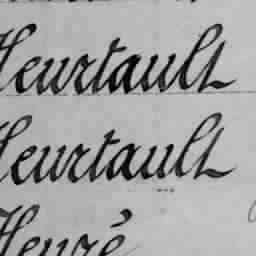 Heurtault
Heurtault
Heuzé